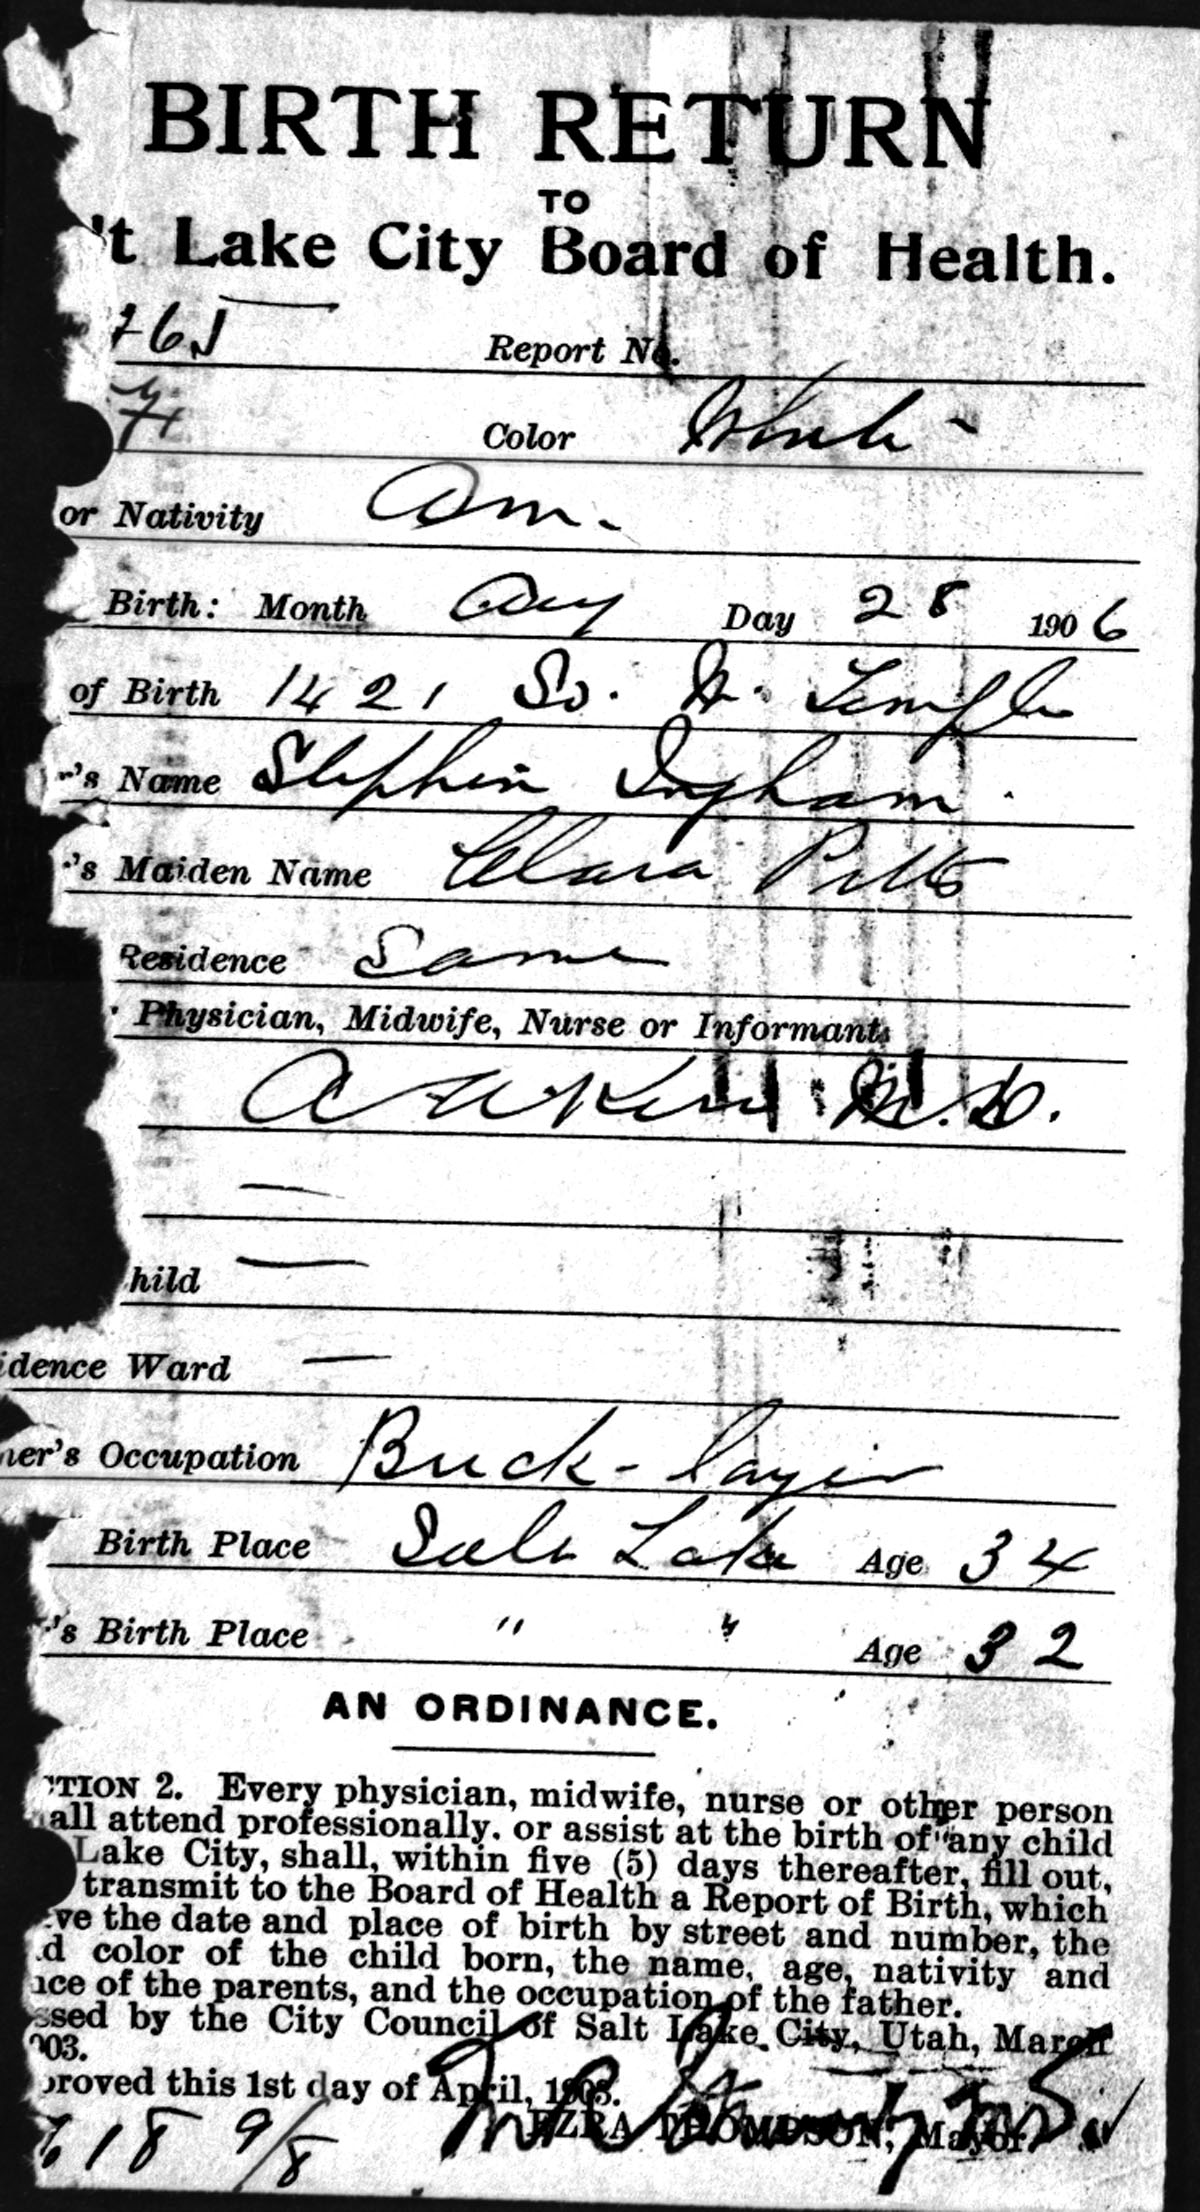 BIRTH RETURN
TO
't Lake City Board of Health.
Report No.
Color White
or Nativity Am.
Birth: Month Aug Day 28 1906
of Birth 1421 So. W. Temple
's Name Stephen Ingham
's Maiden Name Clara Pitts
Residence Same
Physician, Midwife, Nurse or Informant
M.D.
—
hild —
idence Ward —
her's Occupation Brick-layer
Birth Place Salt Lake Age 34
's Birth Place " " Age 32
AN ORDINANCE.
CTION 2. Every physician, midwife, nurse or other person
all attend professionally. or assist at the birth of any child
Lake City, shall, within five (5) days thereafter, fill out,
transmit to the Board of Health a Report of Birth, which
ve the date and place of birth by street and number, the
d color of the child born, the name, age, nativity and
nce of the parents, and the occupation of the father.
ssed by the City Council of Salt Lake City, Utah, March
903.
proved this 1st day of April, 1903.
EZRA THOMPSON, Mayor.
618 9/8